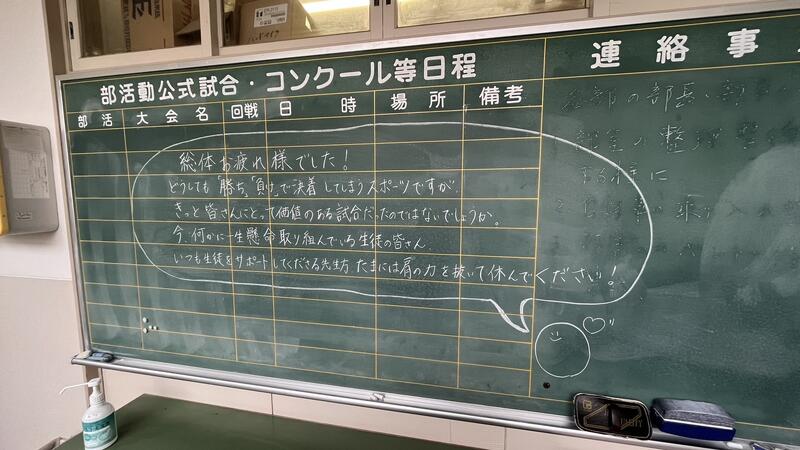 部活動公式試合・コンクール等日程
連絡事
部活 大会名 回戦 日時 場所 備考
総体お疲れ様でした!
どうしても「勝ち」「負け」で決着してしまうスポーツですが、
きっと皆さんにとって価値のある試合だったのではないでしょうか。
今、何かに一生懸命取り組んでいる生徒の皆さん、
いつも生徒をサポートしてくださる先生方、たまには肩の力を抜いて休んでください!
の部長
の整理